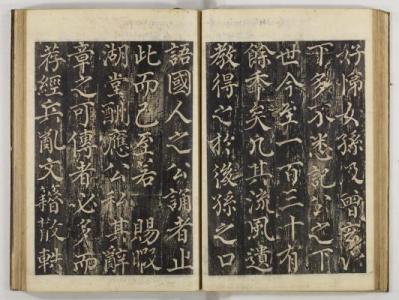 好帰女孫又曽
丁多不悉記公之下
世今至一百三十有
餘季矣凡其流風遺
教得之於後孫之口
語國人之公誦者止
此而已至若 賜暇
湖堂酬應公私其辭
章之可傳者必多而
荐經兵亂文籍散軼